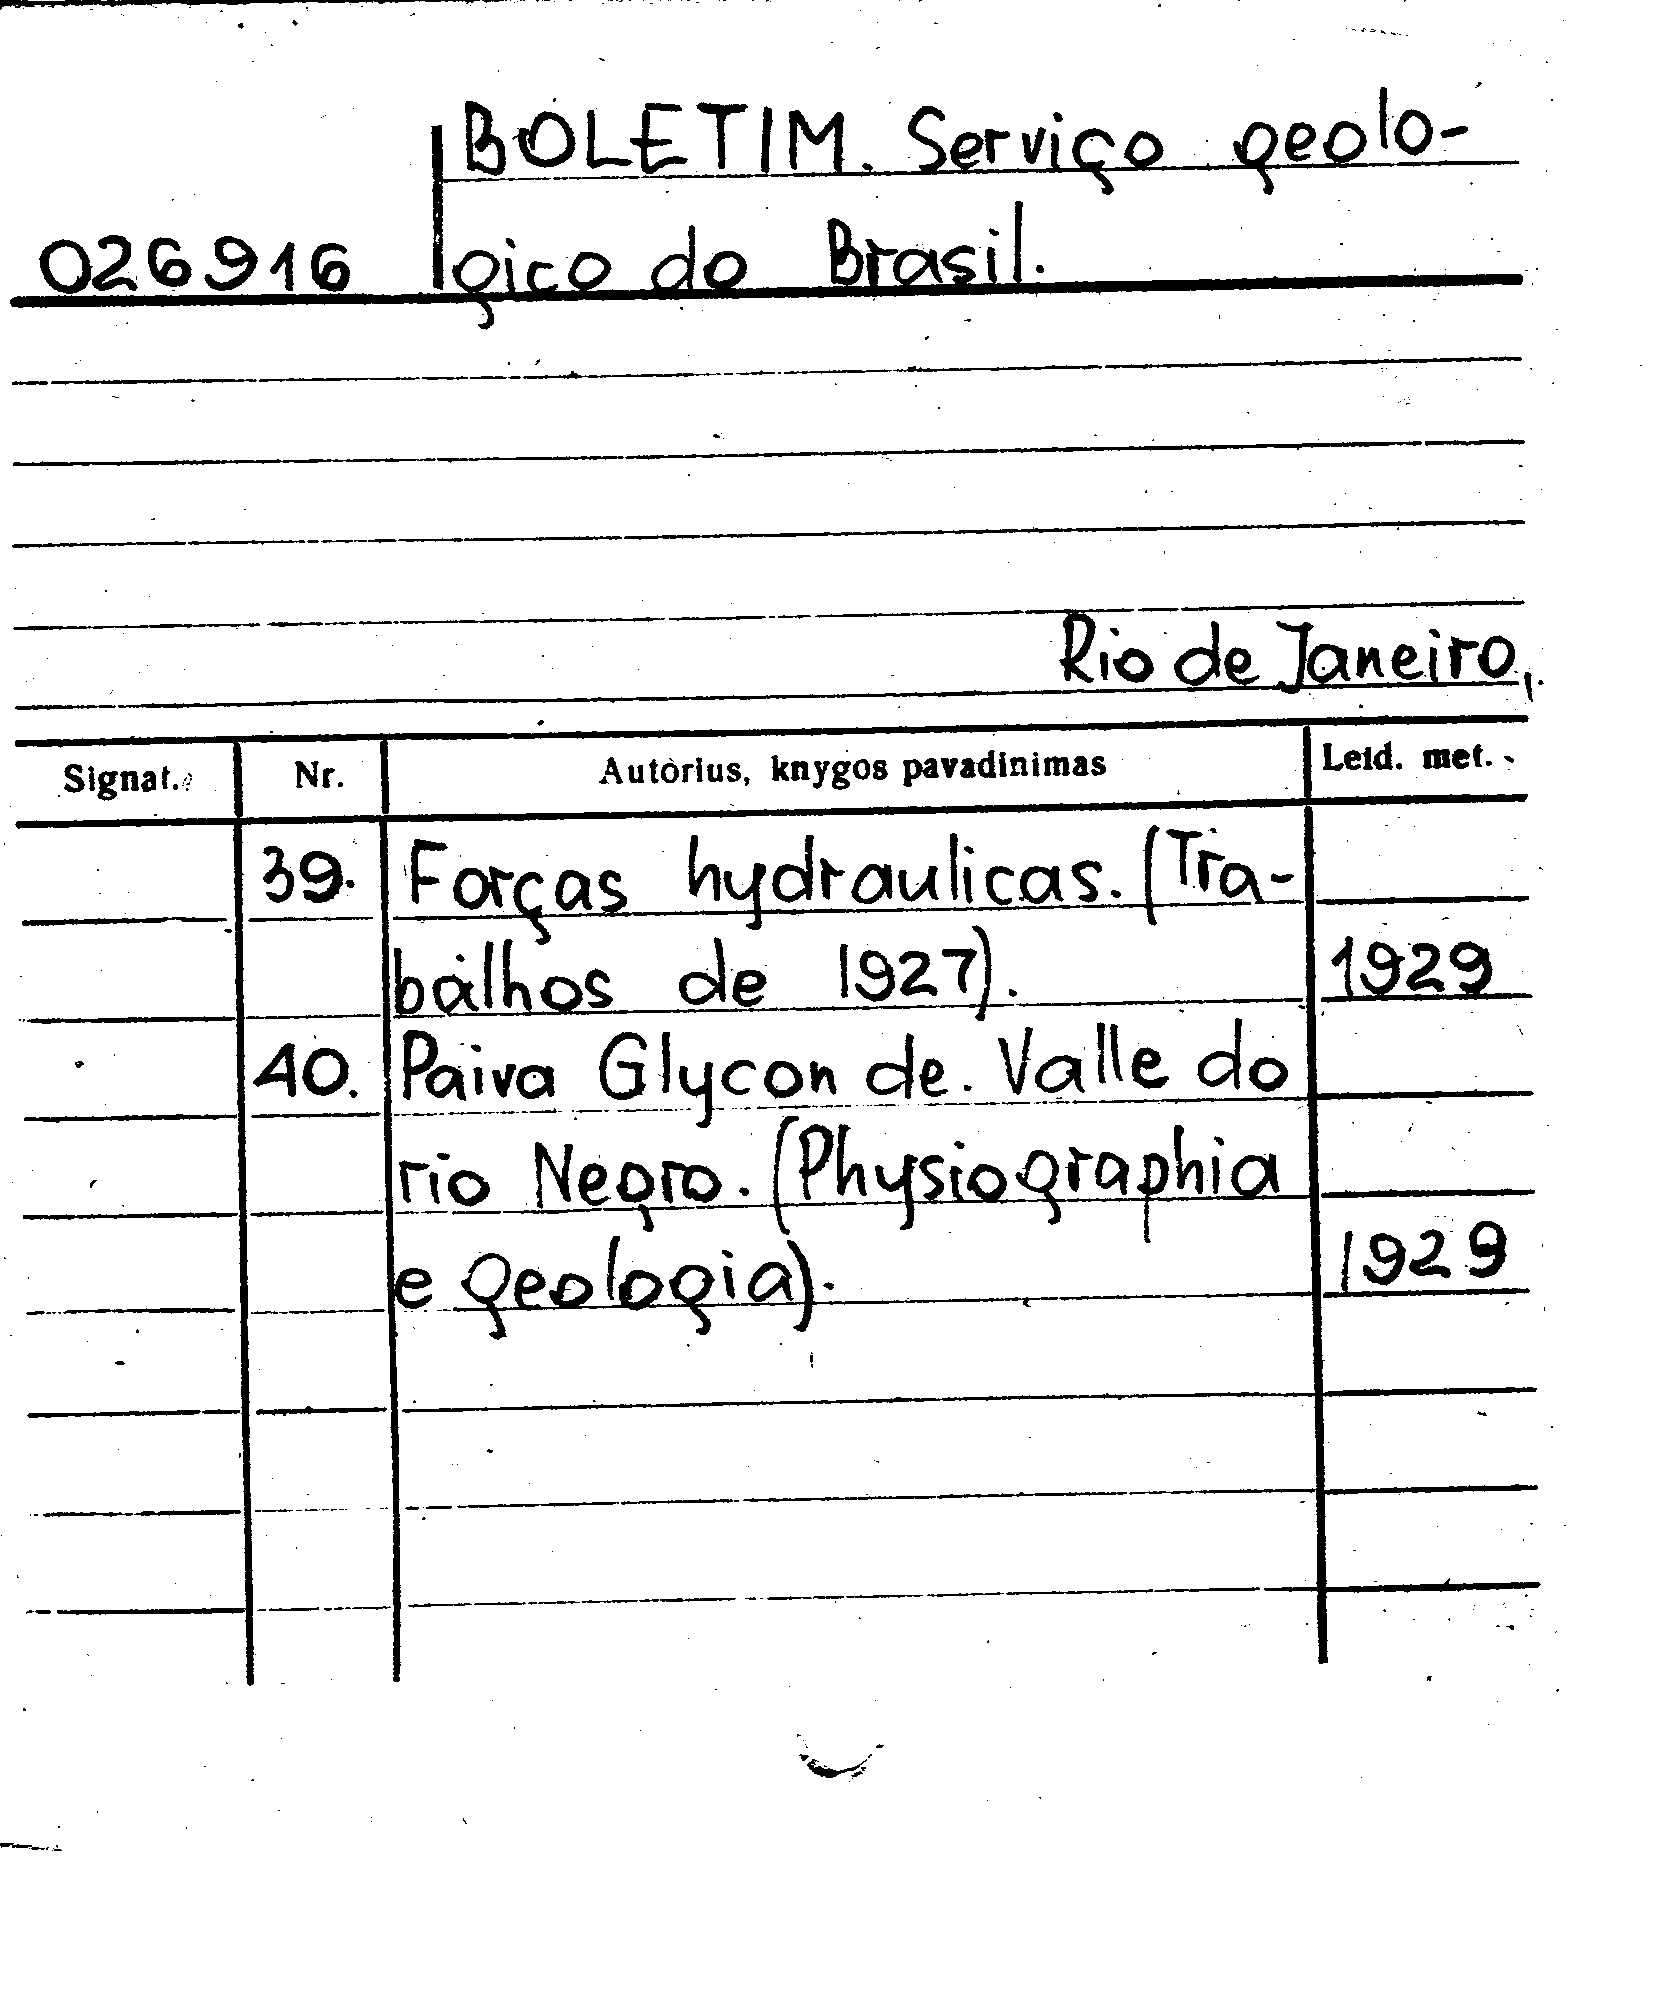 BOLETIM. Serviço geolo-
026916 gico do Brasil.
Rio de Janeiro,
Signat. Nr. Autorius, knygos pavadinimas Leid. met.
39. Forças hydraulicas. (Tra-
balhos de 1927). 1929
40. Paiva Glycon de. Valle do
rio Negro. (Physiographia
e geologia). 1929